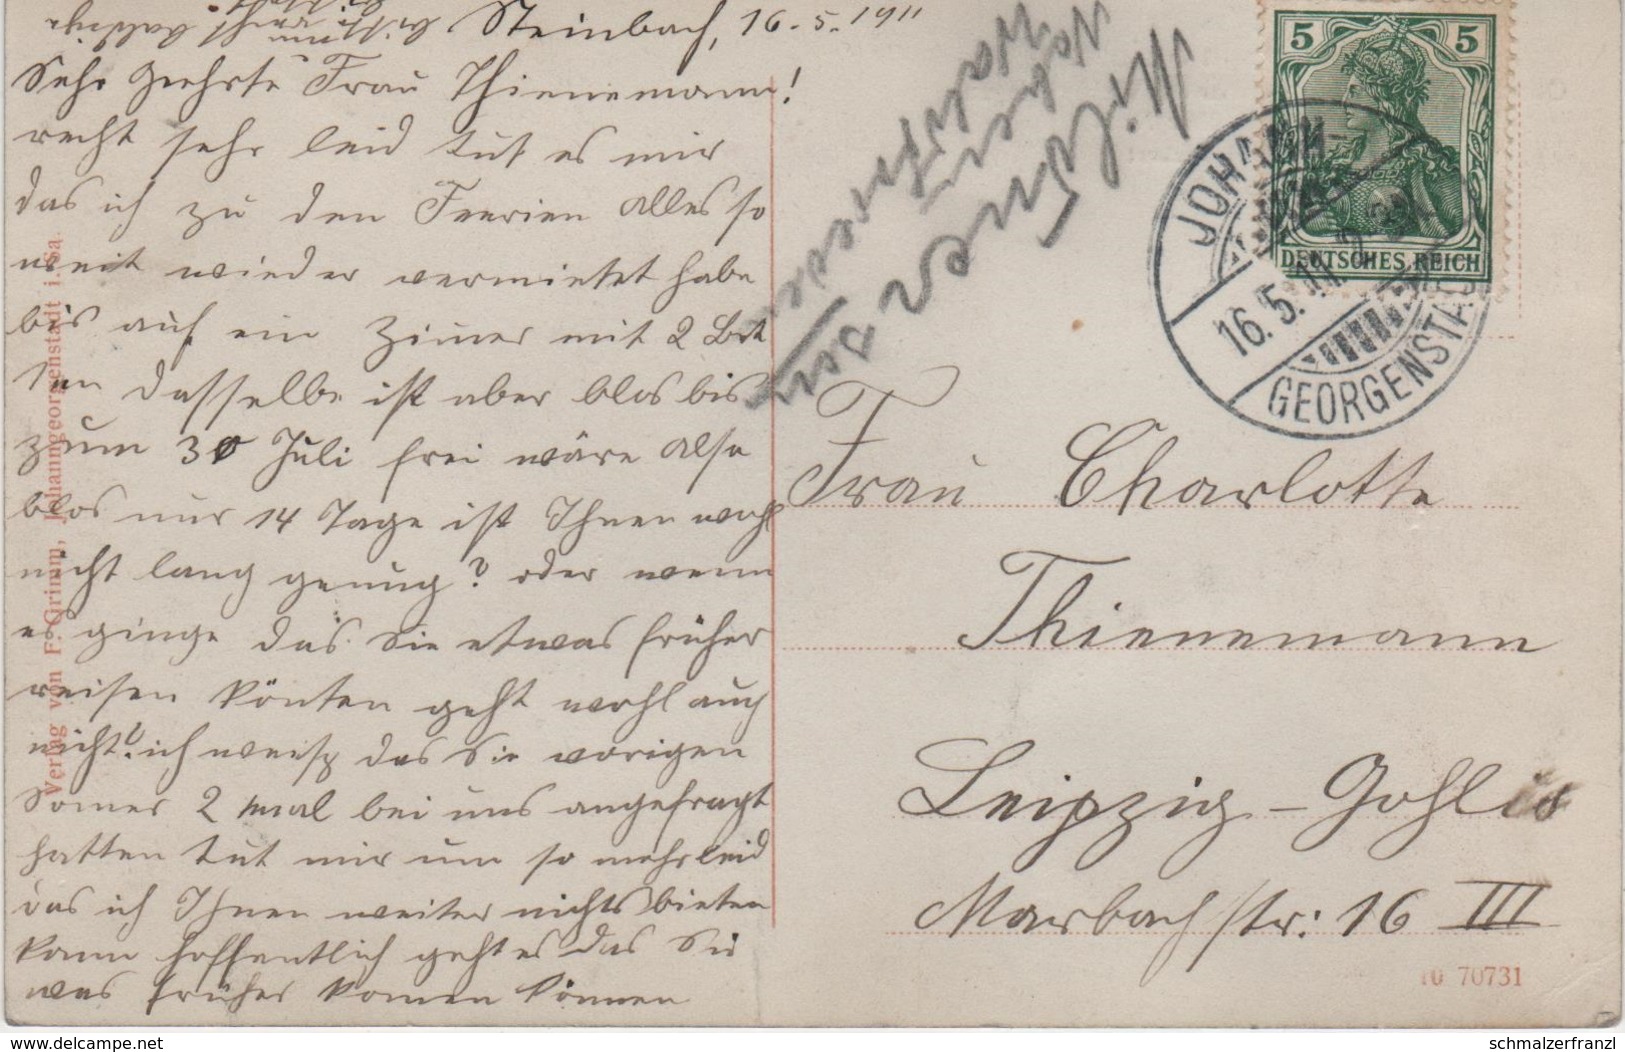 Steinbach, 16.5.1911
Sehr Geehrte Frau Thienemann!
recht sehr leid tut es mir
das ich zu den Feerien alles so
weit wieder vermietet habe
bis auf ein Zimer mit 2 Bet
ten dasselbe ist aber blos bis
zum 30 Juli frei wäre also
blos nur 14 Tage ist Ihnen wohl
nicht lang genug? oder wenn
es ginge das Sie etwas früher
reisen könten geht wohl auch
nicht? ich weiß das Sie vorigen
Somer 2 mal bei uns angefragt
hatten tut mir um so mehr leid
das ich Ihnen weiter nichts bieten
kann hoffentlich geht es das Sie
was früher komen können
Verlag von F. Grimm, Johanngeorgenstadt i. Sa.
5 5
DEUTSCHES REICH
JOHANN-
16.5.11
GEORGENSTADT
Frau Charlotte
Thienemann
Leipzig-Gohlis
Marbachstr: 16 III
10 70731
delcampe.net
schmalzerfranzl